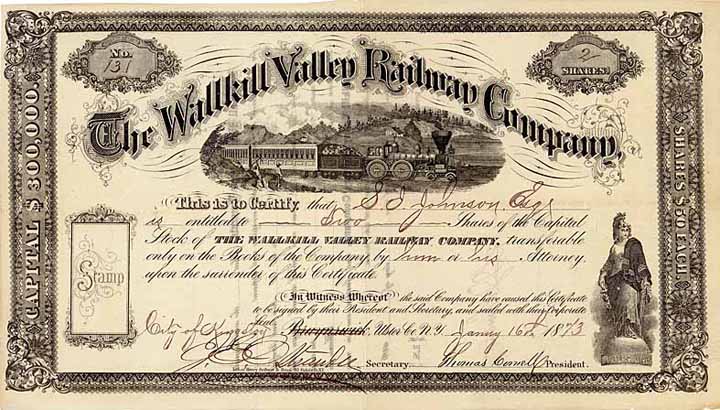 No.
131
2
SHARES.
The Wallkill Valley Railway Company.
CAPITAL $300,000.
SHARES $50 EACH.
This is to Certify, that S. D. Johnson Esqr
is entitled to Two Shares of the Capital
Stock of THE WALLKILL VALLEY RAILWAY COMPANY, transferable
only on the Books of the Company by him or his Attorney
upon the surrender of this Certificate.
Stamp
In Witness Whereof the said Company have caused this Certificate
to be signed by their President and Secretary, and sealed with their Corporate
Seal
City of Kingston Ulster Co. N.Y. Janry 16th 1873
Secretary. Thomas Cornell President.